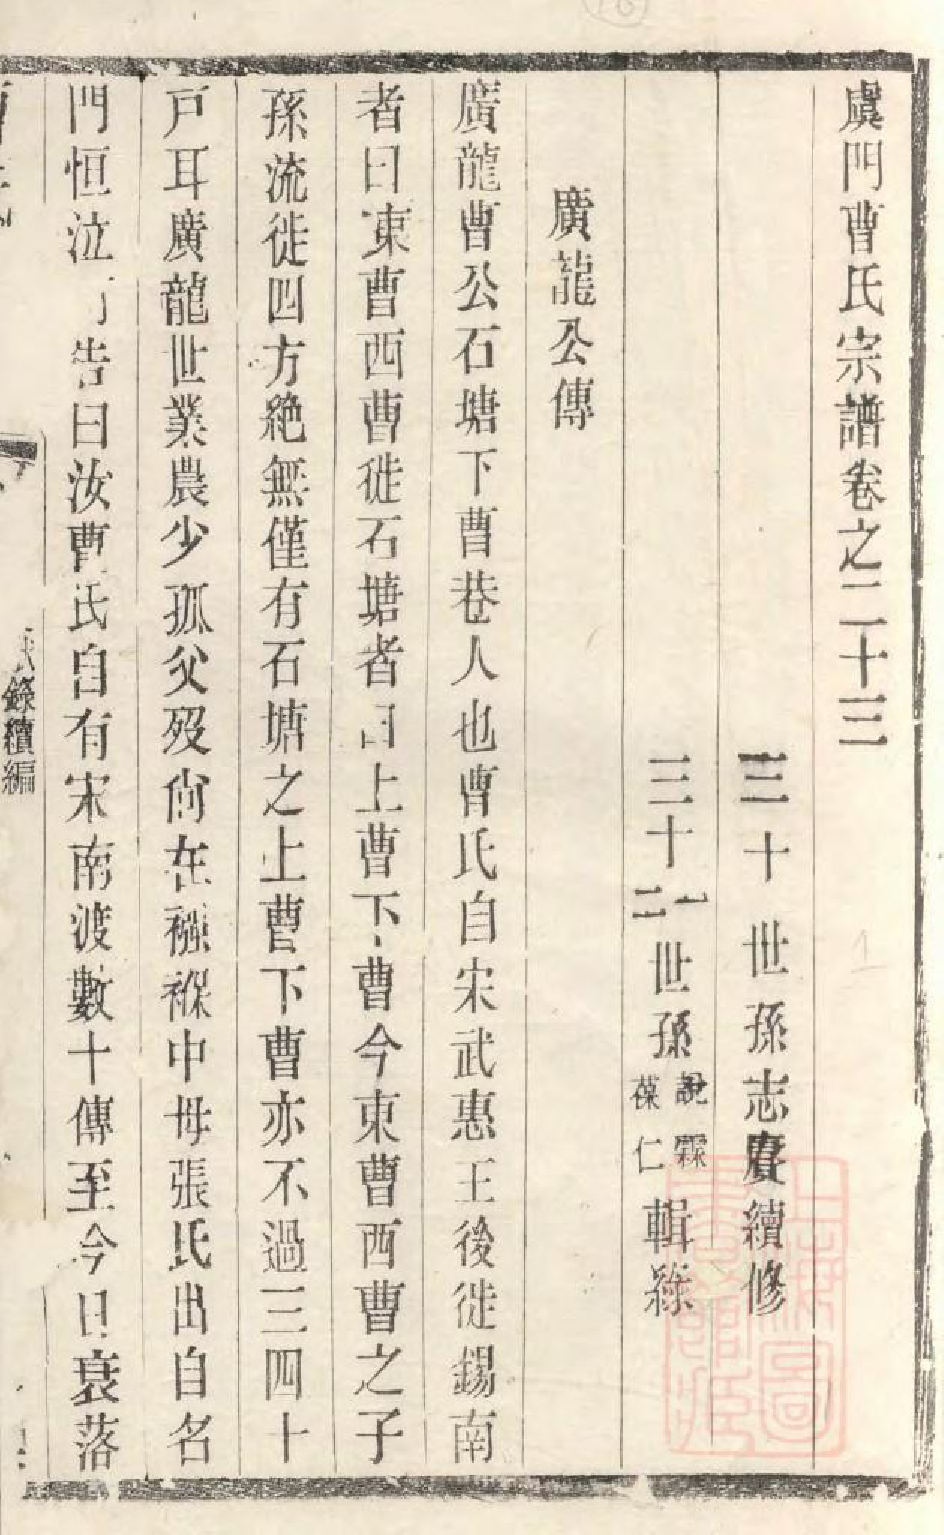 虞門曹氏宗譜卷之二十三
三十世孫志賡續修
三十一二世孫說霖葆仁輯錄
廣龍公傳
廣龍曹公石塘下曹巷人也曹氏自宋武惠王後徙錫南
者曰東曹西曹徙石塘者曰上曹下曹今東曹西曹之子
孫流徙四方絶無僅有石塘之上曹下曹亦不過三四十
戸耳廣龍世業農少孤父歿尙在襁褓中母張氏出自名
門恒泣 告曰汝曹氏自有宋南渡數十傳至今日衰落
錄續編